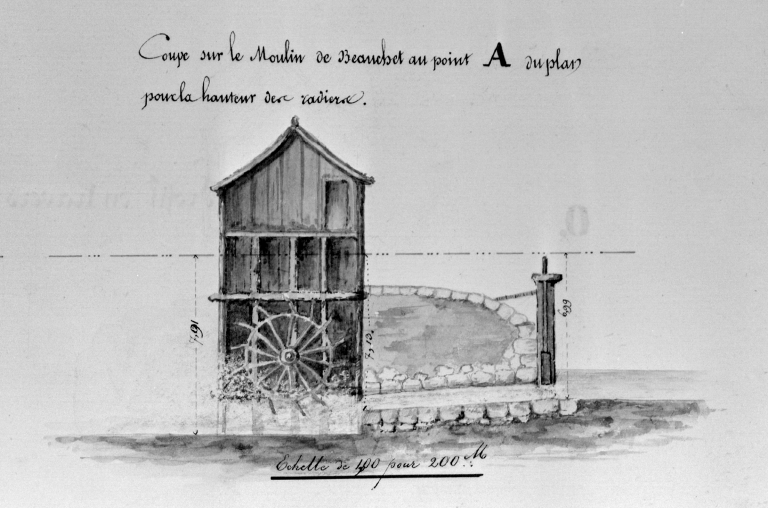 Coupe sur le Moulin de Beauchet au point A du plan
pour la hauteur des radiers.
7,91
7,10
6,99
Echelle de 100 pour 200 M